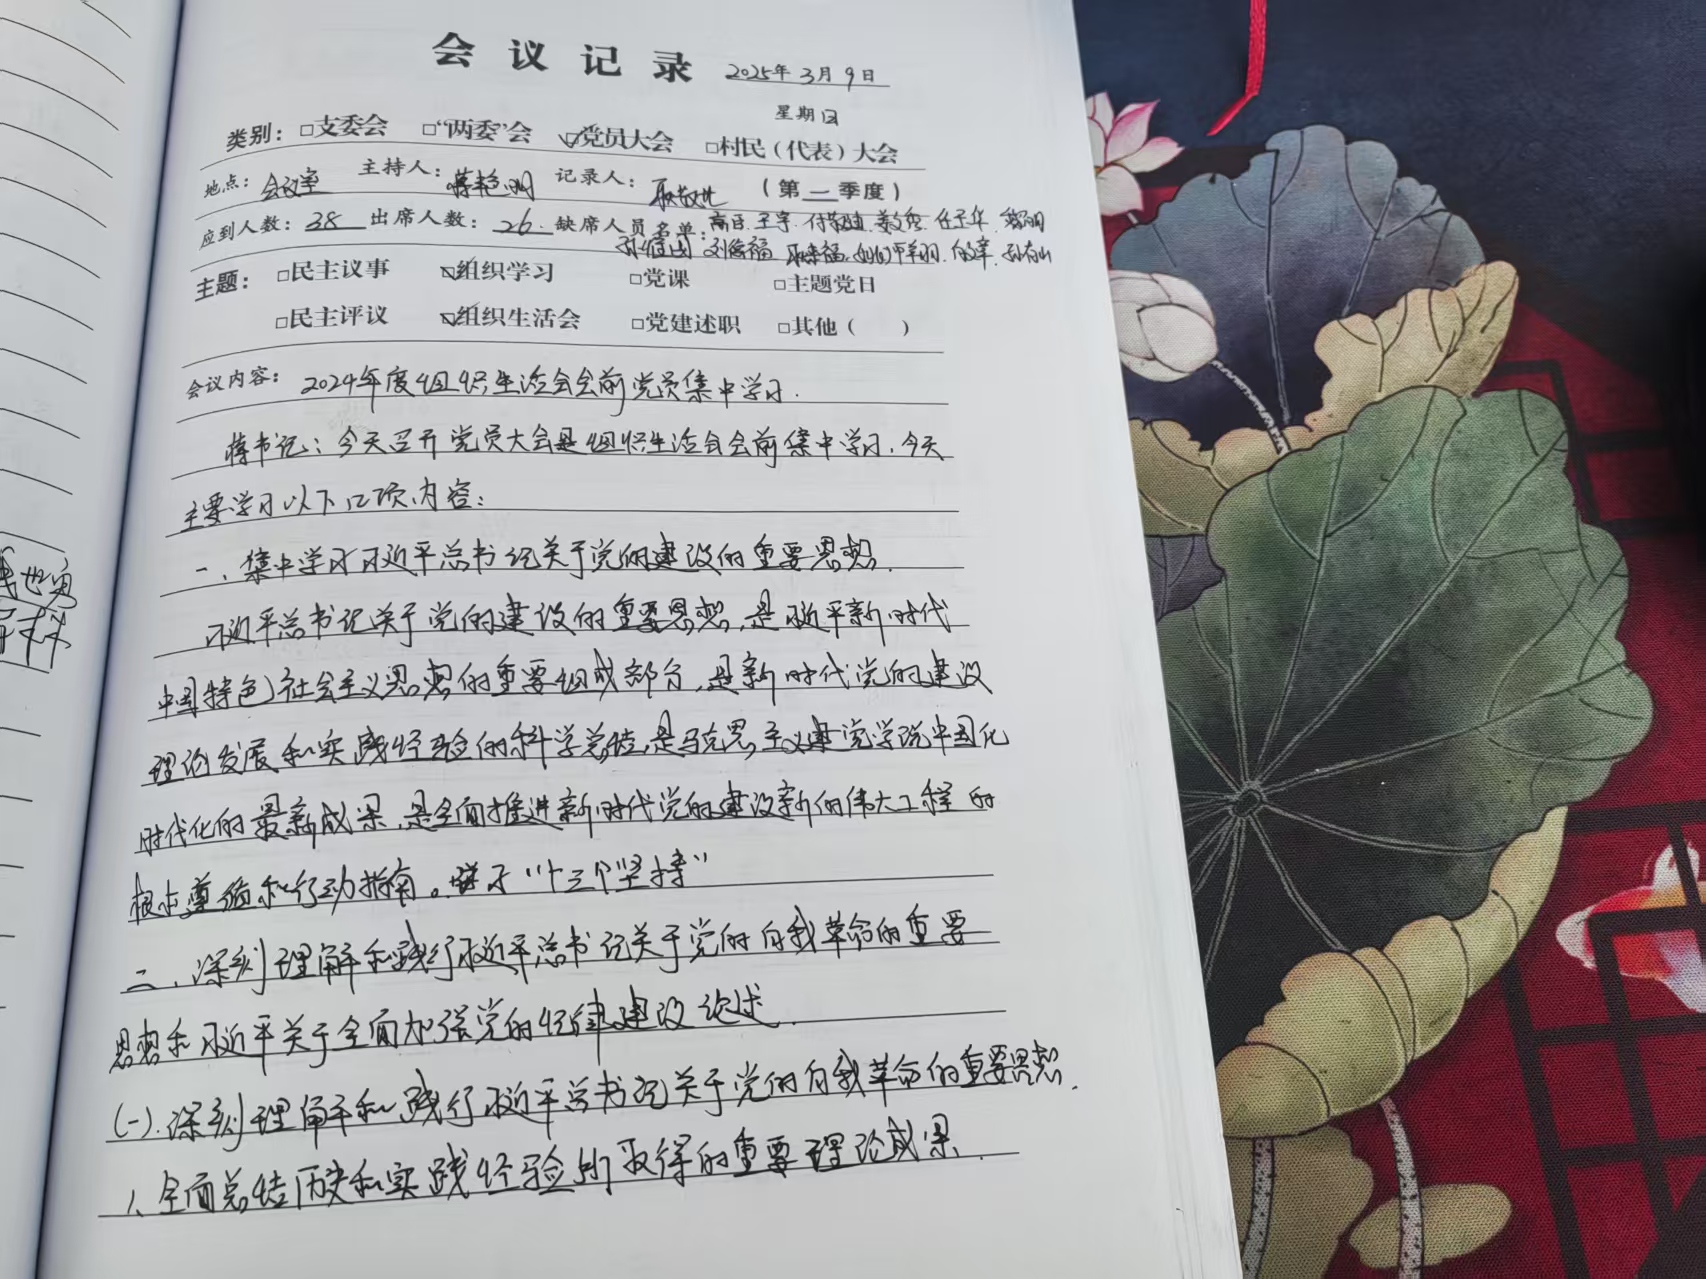 会议记录 2025年3月9日
星期日
类别：□支委会 □“两委”会 ☑党员大会 □村民（代表）大会
地点：会议室 主持人： 记录人： （第一季度）
应到人数：38 出席人数：26. 缺席人员名单： 王宇
刘 福
主题：□民主议事 ☑组织学习 □党课 □主题党日
□民主评议 ☑组织生活会 □党建述职 □其他（ ）
会议内容：2024年度组织生活会会前党员集中学习.
蒋书记：今天召开党员大会是组织生活会会前集中学习.今天
主要学习以下几项内容：
一、集中学习习近平总书记关于党的建设的重要思想.
习近平总书记关于党的建设的重要思想,是习近平新时代
中国特色社会主义思想的重要组成部分,是新时代党的建设
理论发展和实践经验的科学总结,是马克思主义建党学说中国化
时代化的最新成果,是全面推进新时代党的建设新的伟大工程的
根本遵循和行动指南。 “十三个坚持”
二、深刻理解和践行习近平总书记关于党的自我革命的重要
思想和习近平关于全面加强党的纪律建设论述.
(一).深刻理解和践行习近平总书记关于党的自我革命的重要思想.
1、全面总结历史和实践经验所取得的重要理论成果.